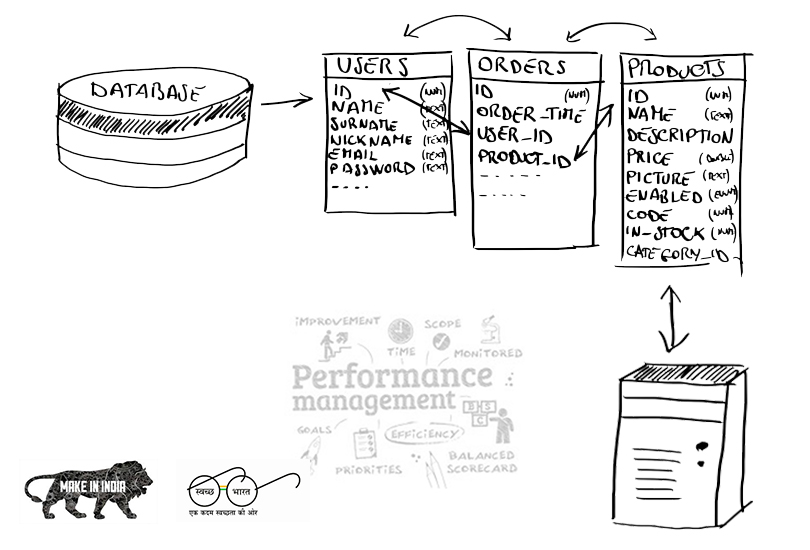 DATABASE
USERS
ID (NUM)
NAME (TEXT)
SURNAME (TEXT)
NICKNAME (TEXT)
EMAIL (TEXT)
PASSWORD (TEXT)
ORDERS
ID (NUM)
ORDER_TIME
USER_ID
PRODUCT_ID
PRODUCTS
ID (NUM)
NAME (TEXT)
DESCRIPTION
PRICE
PICTURE (TEXT)
ENABLED
CODE (NUM)
IN-STOCK (NUM)
CATEGORY_ID
IMPROVEMENT
TIME
SCOPE
MONITORED
Performance
management
B S
C
GOALS
PRIORITIES
EFFICIENCY
BALANCED
SCORECARD
MAKE IN INDIA
स्वच्छ भारत
एक कदम स्वच्छता की ओर